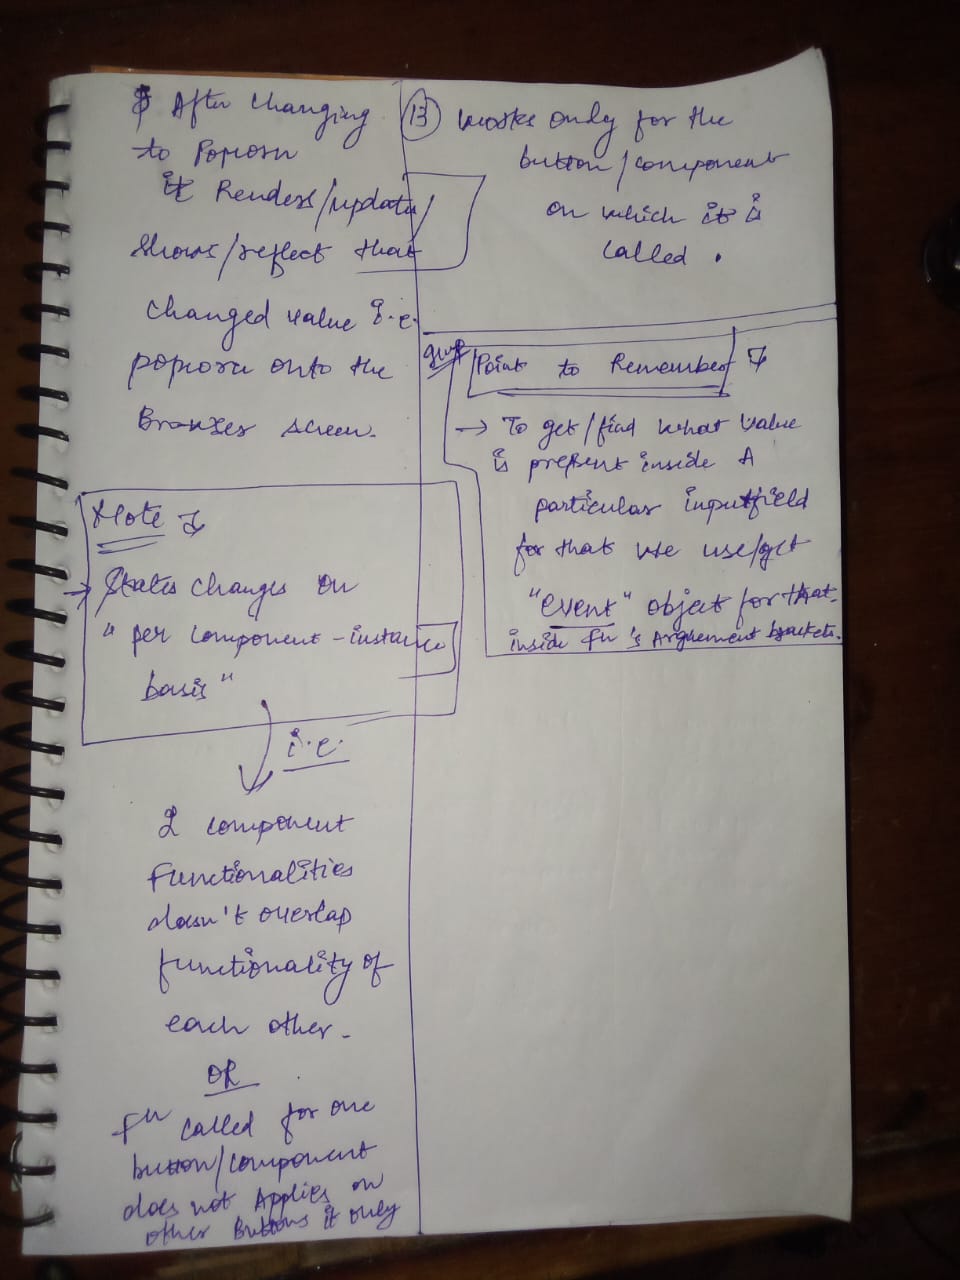 After changing
to Popcorn
it Renders/update/
shows/reflect that
changed value i.e.
popcorn onto the
Browser screen.
Note
→ States changes on
"per component-instance
basis"
i.e.
2 component
Functionalities
doesn't overlap
functionality of
each other.
OR
fn called for one
button/component
does not Applies on
other Buttons it only
13 works only for the
button/component
on which it is
called.
Point to Remember
→ To get/find what value
is present inside A
particular inputfield
for that we use/get
"event" object for that
inside fn's Arguement brackets.